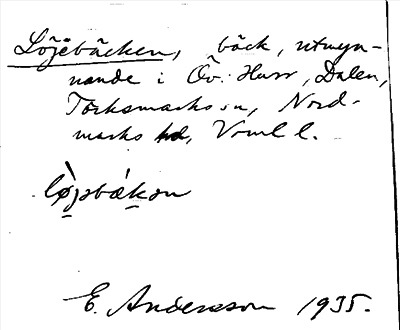 Löjebäcken, bäck, utmyn-
nande i Öv. Hurr, Dalen,
Torksmarks sn, Nord-
marks hd, Vrml l.
E. Andersson 1935.